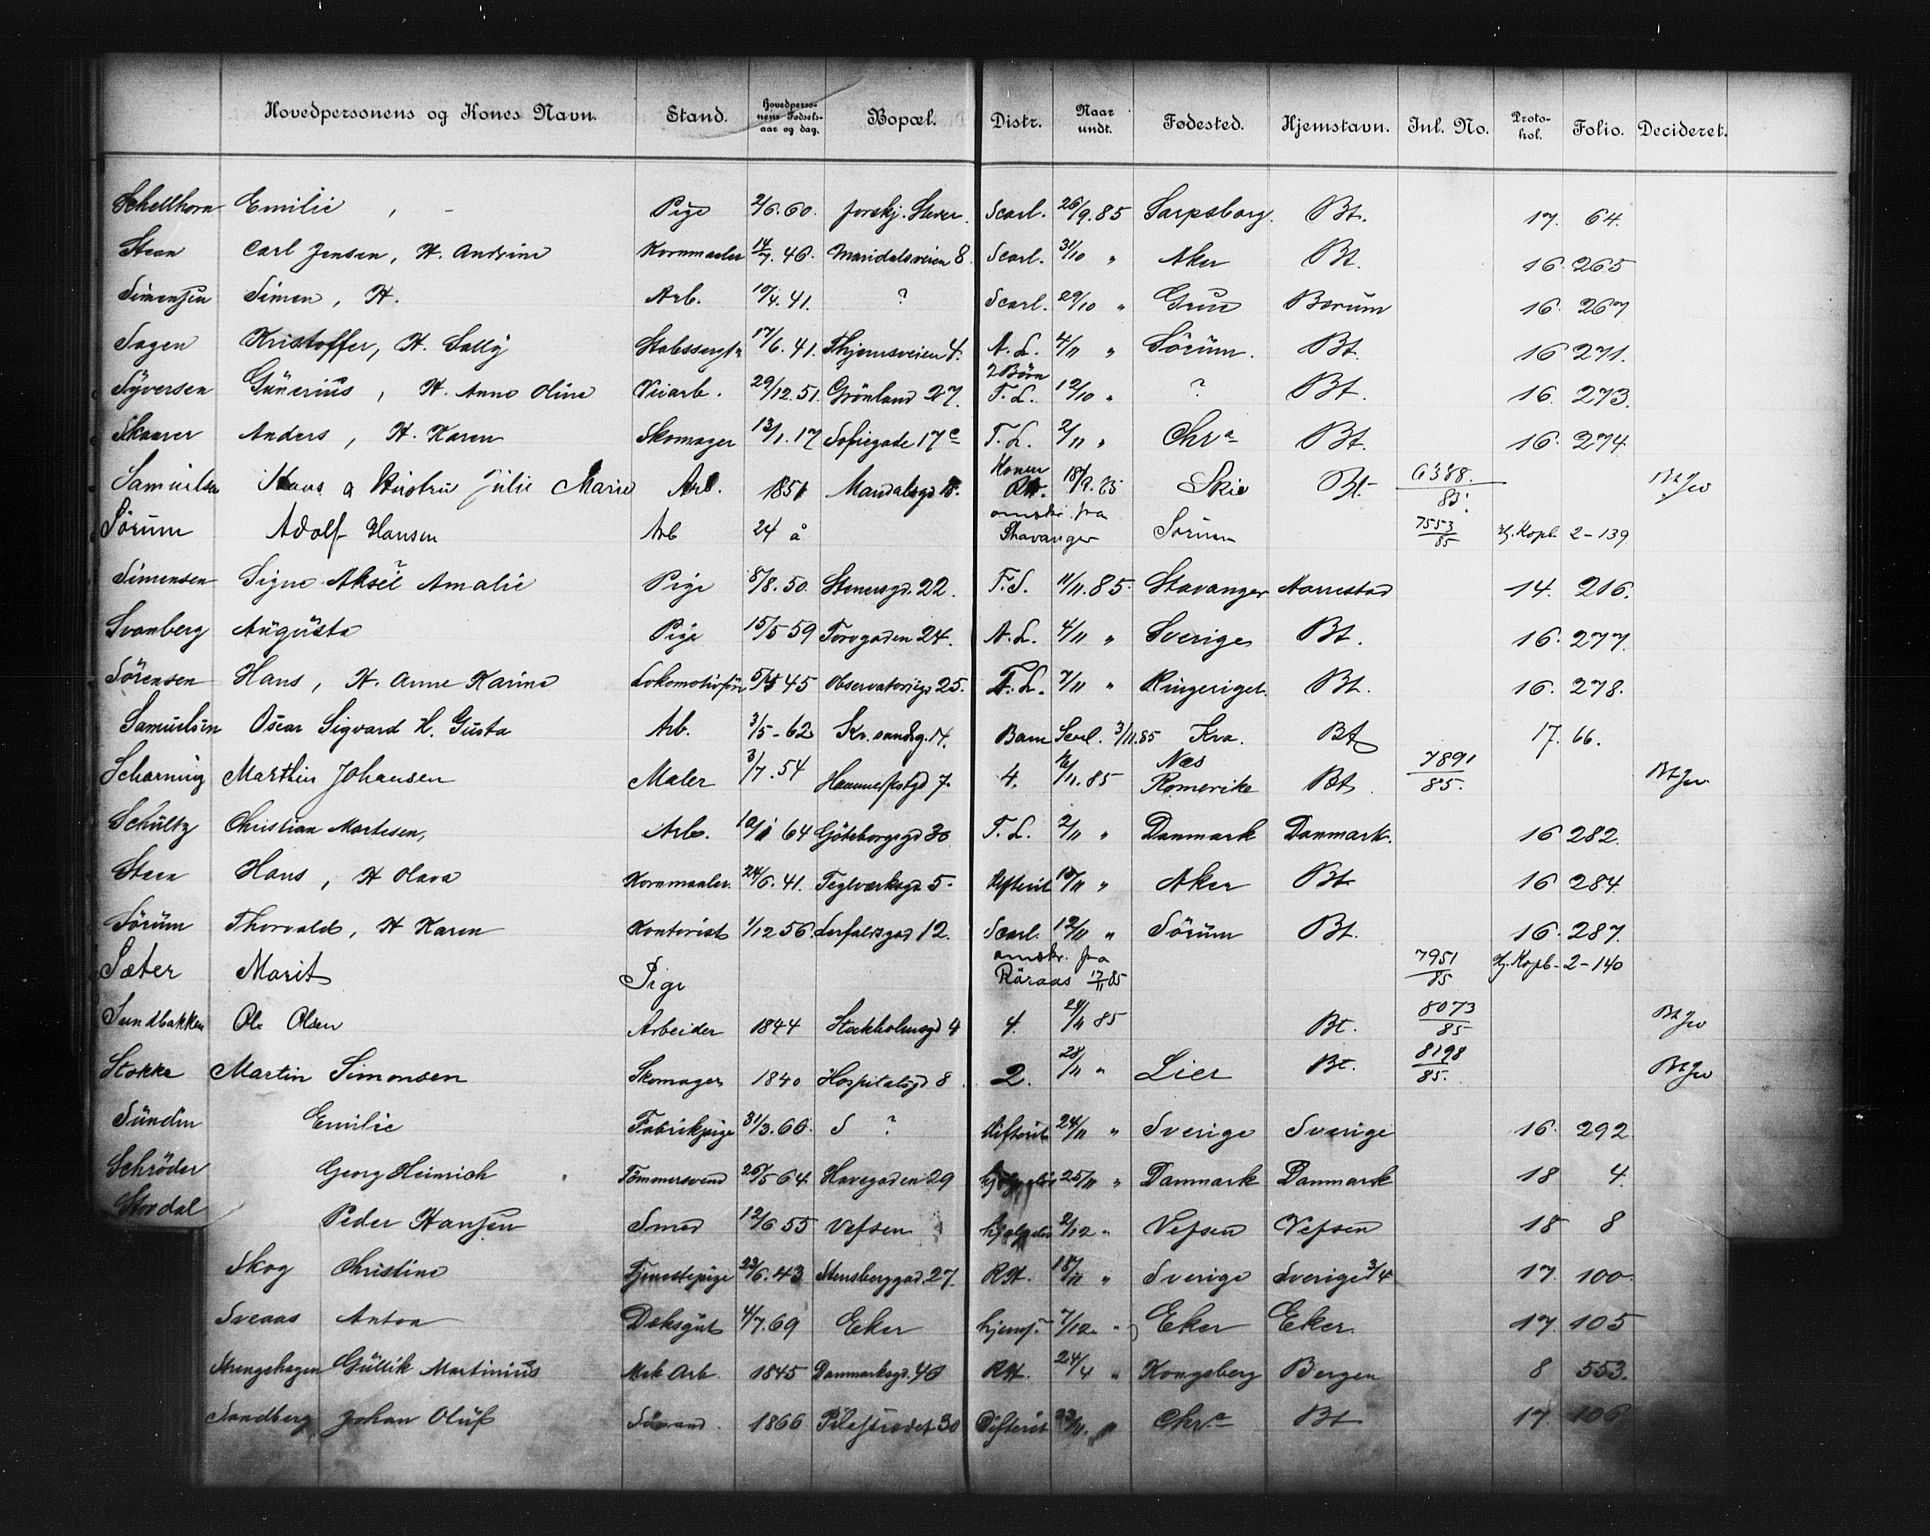 Hovedpersonens og Kones Navn. Stand. Hovedpersonens Fødselsaar og dag. Bopæl. Distr. Naar undt. Fødested. Hjemstavn. Inl. No. Protokol. Folio. Decideret.
Schellhorn Emilie Pige 2/6.60. forskj. Steder. Scarl. 26/9.85 Sarpsborg. Bt. 17. 64.
Steen Carl Jensen, H. Andrine Kornmaaler 14/7.46. Maridalsveien 8. Scarl. 31/10 " Aker Bt. 16. 265
Simensen Simen, H. Arb. 10/4.41. ? Scarl. 29/10 " Grue Bærum 16. 267
Sagen Kristoffer, H. Sally Stabssergt. 17/6.41. Thjemsveien 4. A.L. 4/11 " Sörum. Bt. 16 271.
Syversen Günerius, H. Anne Oline Veiarb. 29/12.51. Grönland 27. 2 Börn F.L. 12/10 " ? Bt. 16. 273.
Skaarer Anders, H. Karen Skomager 13/1.17 Sofiegade 17c T.L. 2/11 " Chra Bt. 16. 274
Samuelsen Hans a Hustru Julie Marie Arb. 1851 Mandalsgd 15. Konen RH. 18/9.85 Skie Bt. 6388./85. Bt Jw
Sörum Adolf Hansen Arb 24 å omskr. fra Stavanger Sörum 7553/85 Hj. Kopb. 2-139
Simensen Signe Aksel Amalie Pige 8/8.50. Stenersgd. 22. F.S. 11/11.85. Stavanger Narrestad 14. 216.
Svanberg Augusta Pige 15/5 59 Torvgaden 24. A.L. 4/11 " Sverige Bt. 16. 277.
Sörensen Hans, H. Anne Karine Lokomotivför 5/5 45 Observatoriigd 25. F.L. 7/11 " Ringeriget. Bt. 16. 278.
Samuelsen Oscar Sigvard H. Gusta Arb. 3/5-62 Kr. sandsg. 14. Barn Scarl. 3/11.85 Kra. Bt 17. 66.
Scharning Marthin Johansen Maler 3/7.54 Hammerfestgd 7. 4. 11.85 Næs Romerike Bt 7891/85. Bt Jw
Schültz Christian Martesen, Arb. 64 Göteborgsgd 30. T.L. 2/11 " Danmark Danmark. 16 282.
Steen Hans, H Olava Kornmaaler. 24/6.41. Teglværksgd 5. Difterit 13/11 " Aker Bt. 16 284.
Sörum Thorvald, H Karen Kontorist 1/12 56. Lerfaldsgad 12. Scarl. 12/11 " Sörum Bt. 16. 287.
Sæter Marit Pige omskr. fra Röraas 17/11 85 7951/85 Hj. Kopb. 2-140
Sundbakken Ole Olsen Arbeider 1844 Stockholmsgd 4 4. 24/11 85 Bt. 8073/85 Bt Jw
Stokke Martin Simonsen Skomager 1840 Hospitalsgd 8. 2. 28/11 " Lier Bt. 8198/85. Bt Jw
Sündin Emilie Fabrikpige 31/3.60. S ? Difterit 24/11 " Sverige Sverige 16. 292
Schröder Georg Heinrich Tömmersvend 26/5 64. Havegaden 29 25/11 " Danmark Danmark 18 4.
Stordal Peder Hansen Smed 12/6 55 Vefsen hjælpelös 2/12 " Vefsen Vefsen 18 8
Skog Christine Tjenestepige 23/6.43 Stensberggad. 27. RH. 18/11 " Sverige Sverige 3/4 17. 100.
Sveaas Anton Dæksgut 4/7.69 Eker hjemf. 7/12. " Eker Eker 17. 105
Strengehagen Güllik Martinius Mek Arb. 1845 Danmarksgd. 40 RH. 24/4 " Kongsberg Bergen 8 553.
Sandberg Johan Oluf Sömand. 1866 Pilestrædet 30 Difterit 23/11 " Chra Bt 17 106